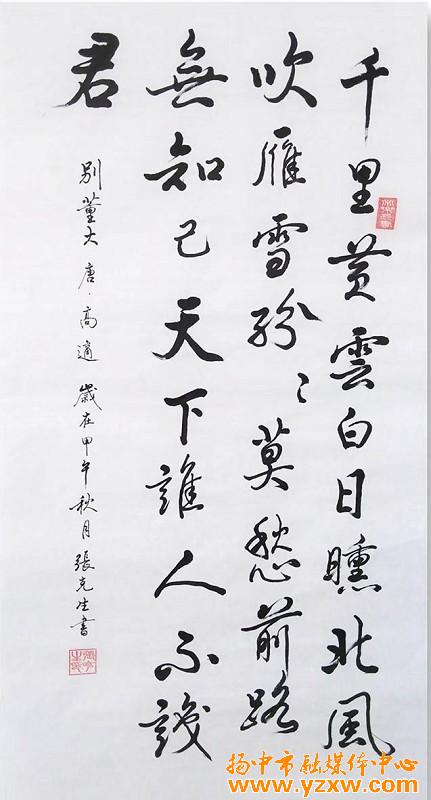 千里黄雲白日曛北風
吹雁雪紛〻莫愁前路
無知己天下誰人不識
君
别董大 唐·高適 歲在甲午秋月張克生書
扬中市融媒体中心
www.yzxw.com